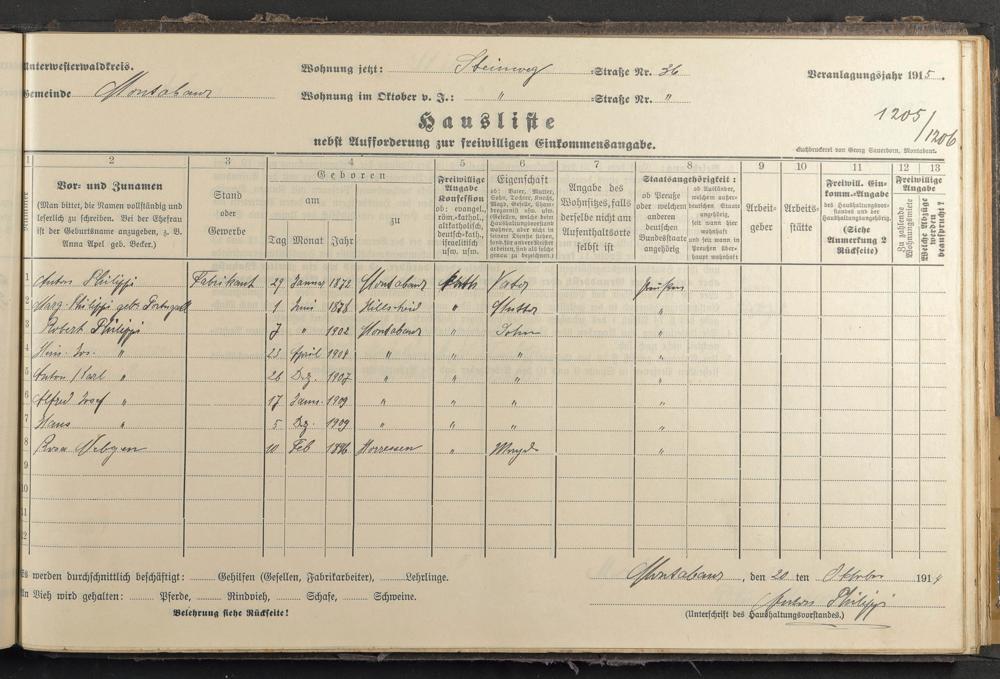 Unterwesterwaldkreis.
Wohnung jetzt: Steinweg =Straße Nr. 36
Veranlagungsjahr 1915.
Gemeinde Montabaur
Wohnung im Oktober v. J.: " =Straße Nr. "
1205/1206
Hausliste
nebst Aufforderung zur freiwilligen Einkommensangabe.
Buchdruckerei von Georg Sauerborn, Montabaur.
1 2 3 4 5 6 7 8 9 10 11 12 13
Vor- und Zunamen
(Man bittet, die Namen vollständig und leserlich zu schreiben. Bei der Ehefrau ist der Geburtsname anzugeben, z. B. Anna Apel geb. Becker.)
Stand oder Gewerbe
Geboren
am
Tag Monat Jahr
zu
Freiwillige Angabe Konfession
ob: evangel., röm.-kathol., altkatholisch, deutsch-kath., israelitisch usw. usw.
Eigenschaft
ob: Vater, Mutter, Sohn, Tochter, Knecht, Magd, Geselle,
Angabe des Wohnsitzes, falls derselbe nicht am Aufenthaltsorte selbst ist
Staatsangehörigkeit:
ob Preuße oder welchem anderen deutschen Bundesstaate angehörig
ob Ausländer, welchem außerdeutschen Staate angehörig, seit wann hier wohnhaft und seit wann in Preußen überhaupt wohnhaft
Arbeitgeber
Arbeitsstätte
Freiwill. Einkomm.-Angabe
des Haushaltungsvorstandes und der Haushaltungsangehörig.
(Siehe Anmerkung 2 Rückseite)
Freiwillige Angabe
Zu zahlende Wohnungsmiete
Welche Abzüge werden beansprucht?
1 Anton Philippi Fabrikant 29 Januar 1872 Montabaur kath Vater Preußen
2 Marg. Philippi geb. Portugall 1 Juni 1876 Hillscheid " Mutter "
3 Robert Philippi 7 " 1902 Montabaur " Sohn "
4 Hein. Jos. " 23 April 1904 " " " "
5 Anton Karl " 28 Dez. 1907 " " " "
6 Alfred Josef " 17 Janu. 1909 " " " "
7 Hans " 5 Dez. 1909 " " " "
8 Rosa 10 Feb 1896 Horressen " Magd "
9
10
11
12
Es werden durchschnittlich beschäftigt: Gehilfen (Gesellen, Fabrikarbeiter), Lehrlinge.
Montabaur, den 20 ten Oktober 1914
An Vieh wird gehalten: Pferde, Rindvieh, Schafe, Schweine.
Anton Philippi
Belehrung siehe Rückseite!
(Unterschrift des Haushaltungsvorstandes.)